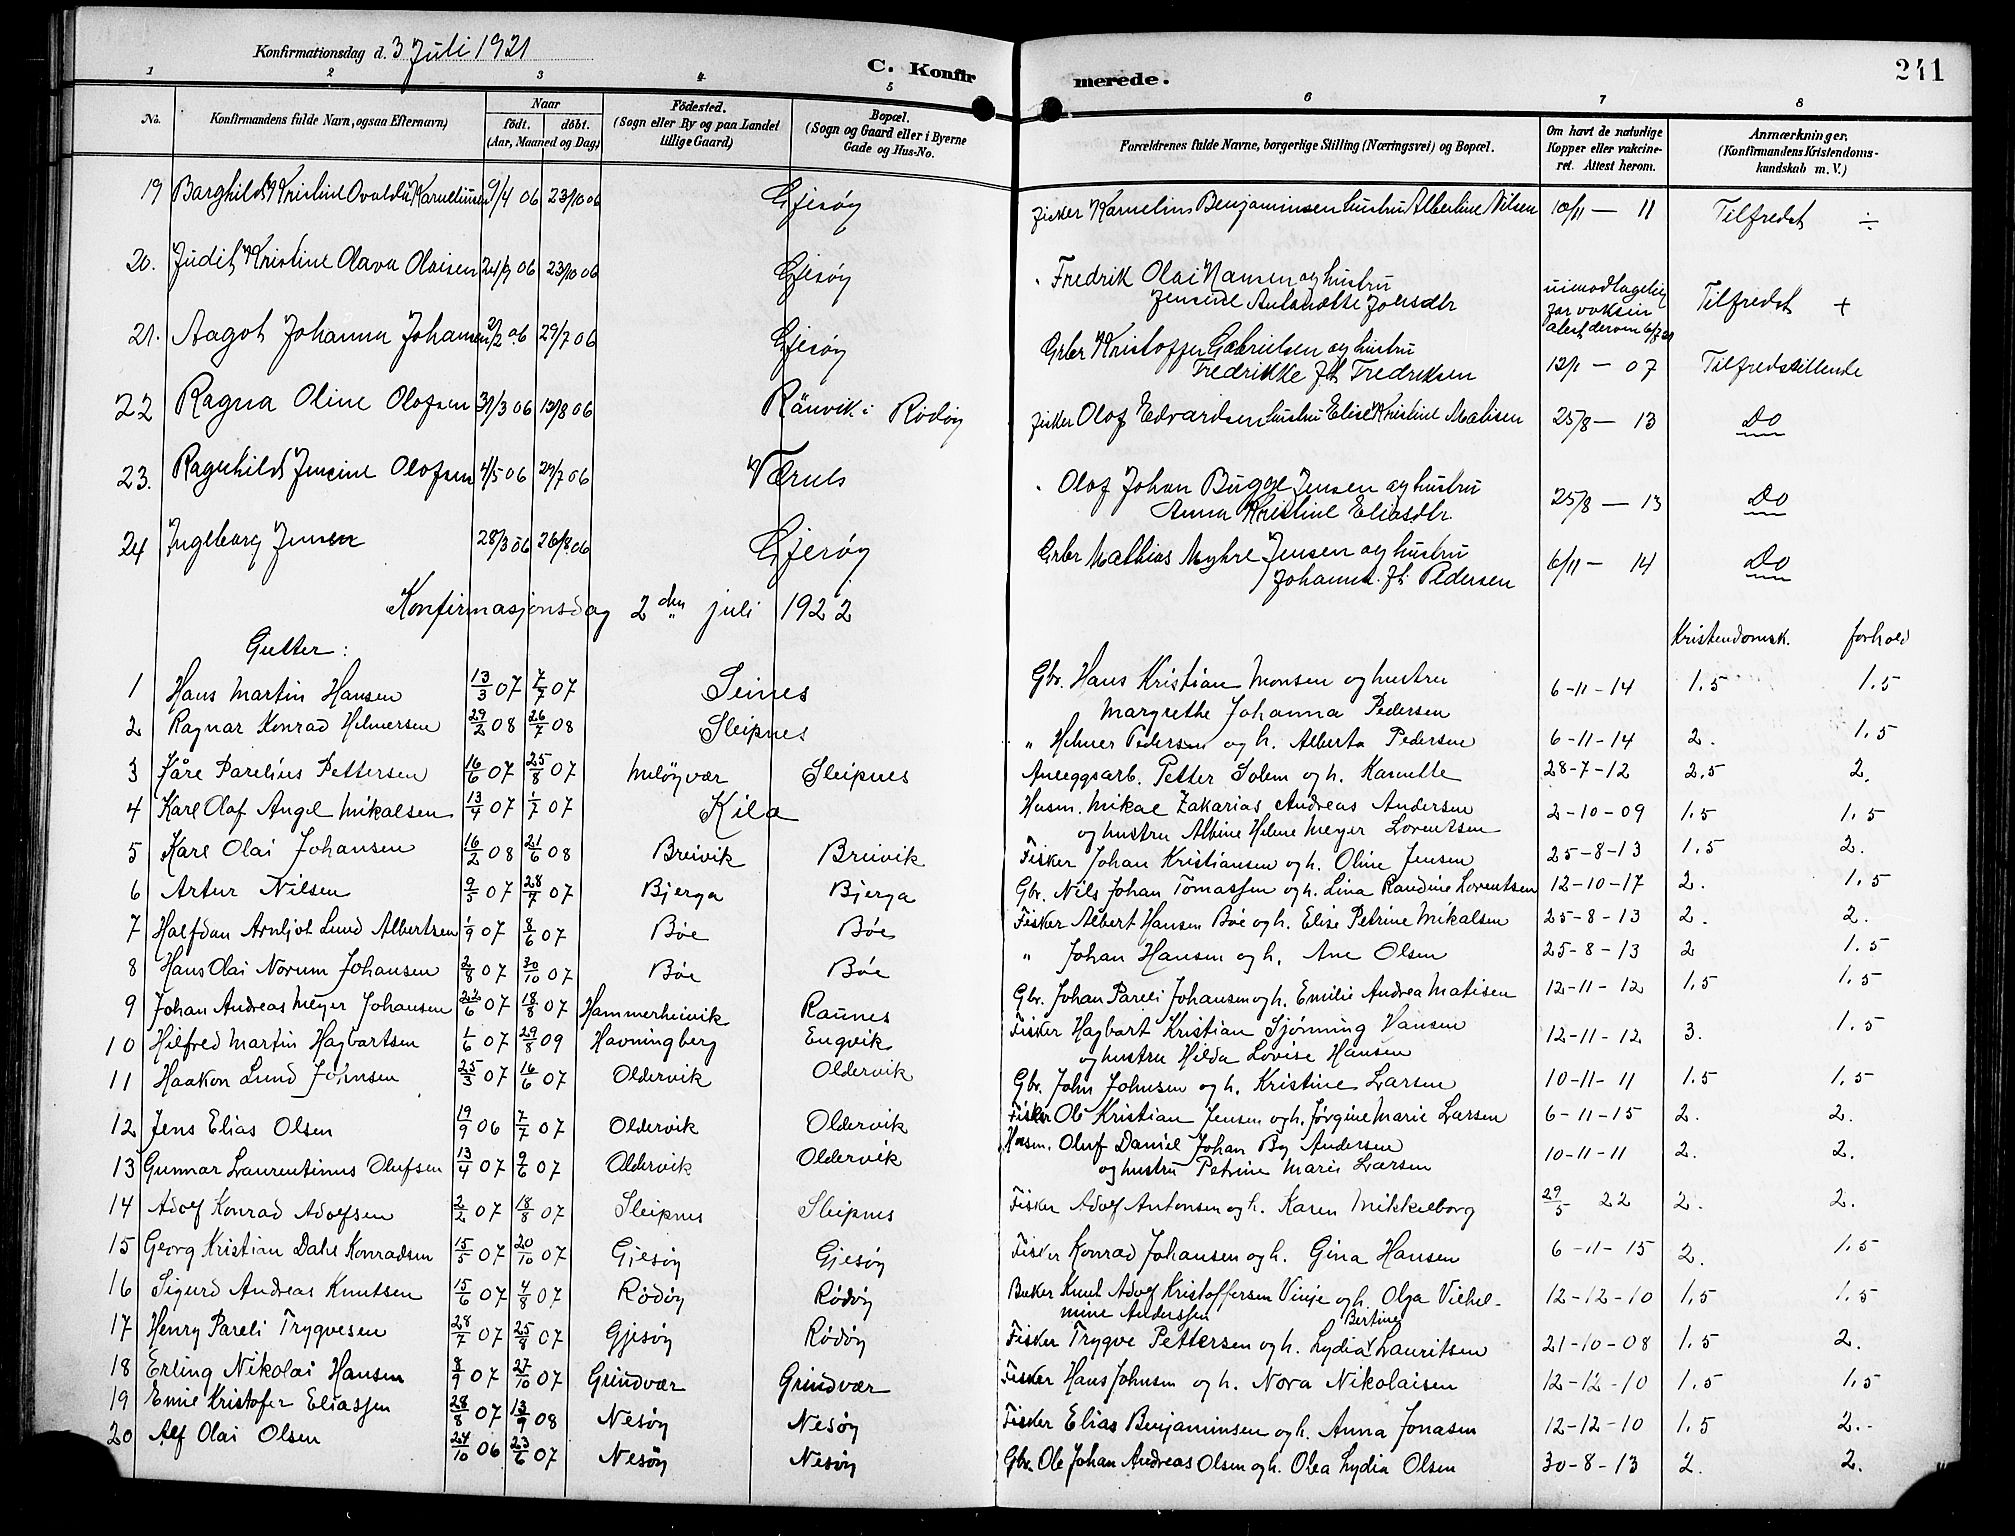 Konfirmationsdag d. 3 Juli 1921
C. Konfirmerede.
241
1 2 3 4 5 6 7 8
No.
Konfirmandens fulde Navn, ogsaa Efternavn)
Naar
født. døbt.
(Aar, Maaned og Dag)
Fødested.
(Sogn eller By og paa Landet
tillige Gaard)
Bopæl.
(Sogn og Gaard eller i Byerne
Gade og Hus-No.
Forældrenes fulde Navne, borgerlige Stilling (Næringsvei) og Bopæl.
Om havt de naturlige
Kopper eller vakcine-
ret. Attest herom.
Anmærkninger.
(Konfirmandens Kristendoms-
kundskab m. V.)
19 Borghild Kristine Ovaldi Karneliusen 9/4 06 23/10 06 Gjesøy Fisker Karnelius Benjaminsen hustru Albertine Nilsen 10/11 — 11 Tilfredst ÷
20. Judit Kristine Olava Olaisen 24/9 06 23/10 06 Gjesøy Fredrik Olai Hansen og hustru
Jensine Antonette Joensdtr uimodtagelig
for vaksin
atest derom Tilfredst +
21. Aagot Johanna Johansen 2/2 06 29/7 06 Gjesøy Grbr Kristoffer Gabrielsen og hustru
Fredrikke f. Fredriksen 12/1 — 07 Tilfredsstillende
22 Ragna Oline Olofsen 31/3 06 12/8 06 Rånvik i Rødøy Fisker Olof Edvardsen hustru Elise Kristine Matisen 25/8 — 13 Do
23. Ragnhild Jensine Olofsen 4/5 06 29/7 06 Værnes Olof Johan Bugge Jensen og hustru
Anna Kristine Eliasdtr. 25/8 — 13 Do
24 Ingeborg Jensen 28/3 06 26/8 06 Gjesøy Grbr Mathias Myhre Jensen og hustru
Johanna f. Pedersen 6/11 — 14 Do
Konfirmasjonsdag 2den juli 1922
Kristendomsk. forhold
Gutter:
1 Hans Martin Hansen 13/3 07 7/7 07 Seines Gbr. Hans Kristian Monsen og hustru
Margrethe Johanna Pedersen 6-11-14 1.5 1.5
2 Ragnar Konrad Helmersen 29/2 08 26/7 08 Sleipnes " Helmer Pedersen og h. Alberta Pedersen 6-11-14 2. 1.5
3 Kåre Parelius Pettersen 16/6 07 25/8 07 Meløyvær Sleipnes Anleggsarb. Petter Solem og h. Kanutte 28-7-12 2,5 2.
4 Karl Olaf Angel Mikalsen 13/4 07 1/7 07 Kila Husm. Mikal Zakarias Andreas Andersen
og hustru Albine Helene Meyer Lorentsen 2-10-09 1.5 1.5
5 Karl Olai Johansen 16/2 08 21/6 08 Breivik Breivik Fisker Johan Kristiansen og h. Oline Jensen 25-8-13 1.5 2.
6 Artur Nilsen 9/5 07 28/7 07 Bjerga Bjerga Gbr. Nils Johan Tomassen og h. Lina Randine Lorentsen 12-10-17 2. 1.5
7 Halfdan Arnljot Lund Albertsen 1/9 07 8/6 07 Bøe Bøe Fisker Albert Hansen Bøe og h. Elise Petrine Mikalsen 25-8-13 2. 2.
8 Hans Olai Norum Johansen 2/8 07 30/10 07 Bøe Bøe " Johan Hansen og h. Ane Olsen 25-8-13 2 1.5
9 Johan Andreas Meyer Johansen 22/6 07 18/8 07 Hammerheivik Raunes Gbr. Johan Pareli Johansen og h. Emilie Andrea Matisen 12-11-12 1.5 1.5
10 Hilfred Martin Hagbartsen 1/6 07 29/8 09 Havningberg Engvik Fisker Hagbart Kristian Sjønning Hansen
og hustru Hilda Lovise Hansen 12-11-12 3. 1.5
11 Haakon Lund Johnsen 25/3 07 16/6 07 Oldervik Oldervik Gbr. John Johnsen og h. Kristine Larsen 10-11-11 1.5 1.5
12 Jens Elias Olsen 19/9 06 7/7 07 Oldervik Oldervik Fisker Ole Kristian Jensen og h. Jørgine Marie Larsen 6-11-15 2. 2.
13 Gunnar Laurentinus Olufsen 13/4 07 9/6 07 Oldervik Oldervik Husm. Oluf Daniel Johan By Andersen
og hustru Petrine Marie Larsen 10-11-11 2. 2.
14 Adolf Konrad Adolfsen 2/2 07 18/8 07 Sleipnes Sleipnes Fisker Adolf Antonsen og h. Karen Mikkelborg 29/5 22 2. 2.
15 Georg Kristian Dahl Konradsen 15/5 07 20/10 07 Gjesøy Gjesøy Fisker Konrad Johansen og h. Gina Hansen 6-11-15 2. 1.5
16 Sigurd Andreas Knutsen 15/6 07 4/8 07 Rødøy Rødøy Baker Knut Adolf Kristoffersen Vinje og h. Olga Vilhel-
mine Anderssen 12-12-10 1.5 1.5
17 Henry Pareli Trygvesen 28/7 07 25/8 07 Gjesøy Rødøy Fisker Trygve Pettersen og h. Lydia Bertine Lauritsen 21-10-08 1.5 2.
18 Erling Nikolai Hansen 8/9 07 27/10 07 Grindvær Grindvær Fisker Hans Johnsen og h. Nora Nikolaisen 12-12-10 1.5 1.5
19 Emil Kristofer Eliassen 28/8 07 13/9 08 Nesøy Nesøy Fisker Elias Benjaminsen og h. Anna Jonasen 12-12-10 1.5 2.-
20 Alf Olai Olsen 24/10 06 23/6 07 Nesøy Nesøy Gbr. Ole Johan Andreas Olsen og h. Olea Lydia Olsen 30-8-13 2. 2.